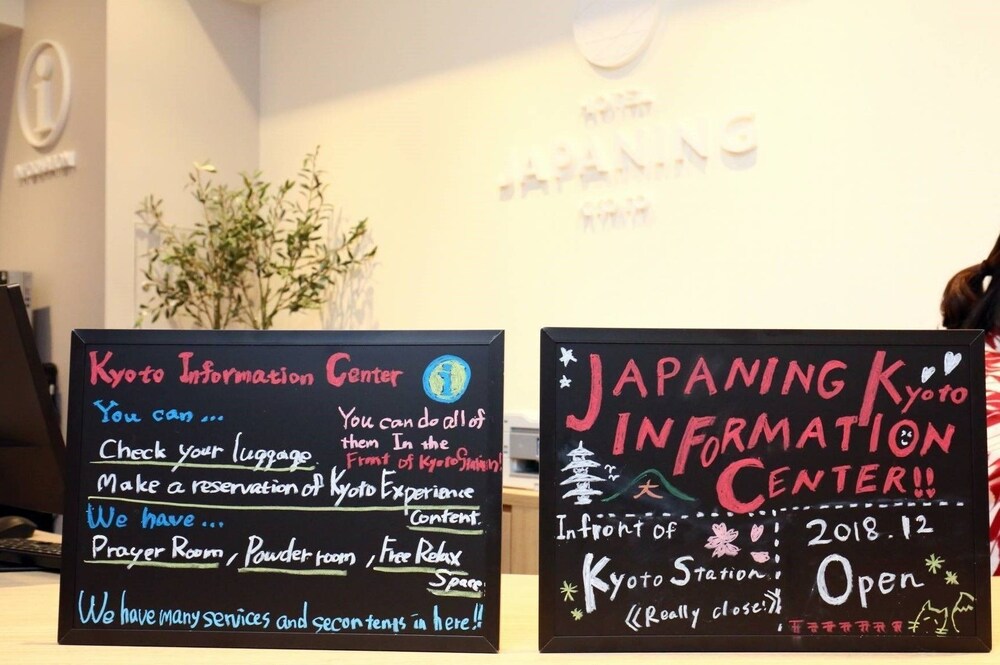 JAPANING
Kyoto Information Center
You can...
You can do all of
them In the
Front of Kyoto Station!
Check your luggage
Make a reservation of Kyoto Experience
Content.
We have...
Prayer Room, Powder room, Free Relax
Space
We have many services and secontents in here!!
JAPANING Kyoto
INFORMATION
CENTER!!
大
Infront of
Kyoto Station
《Really close!》
2018.12
Open